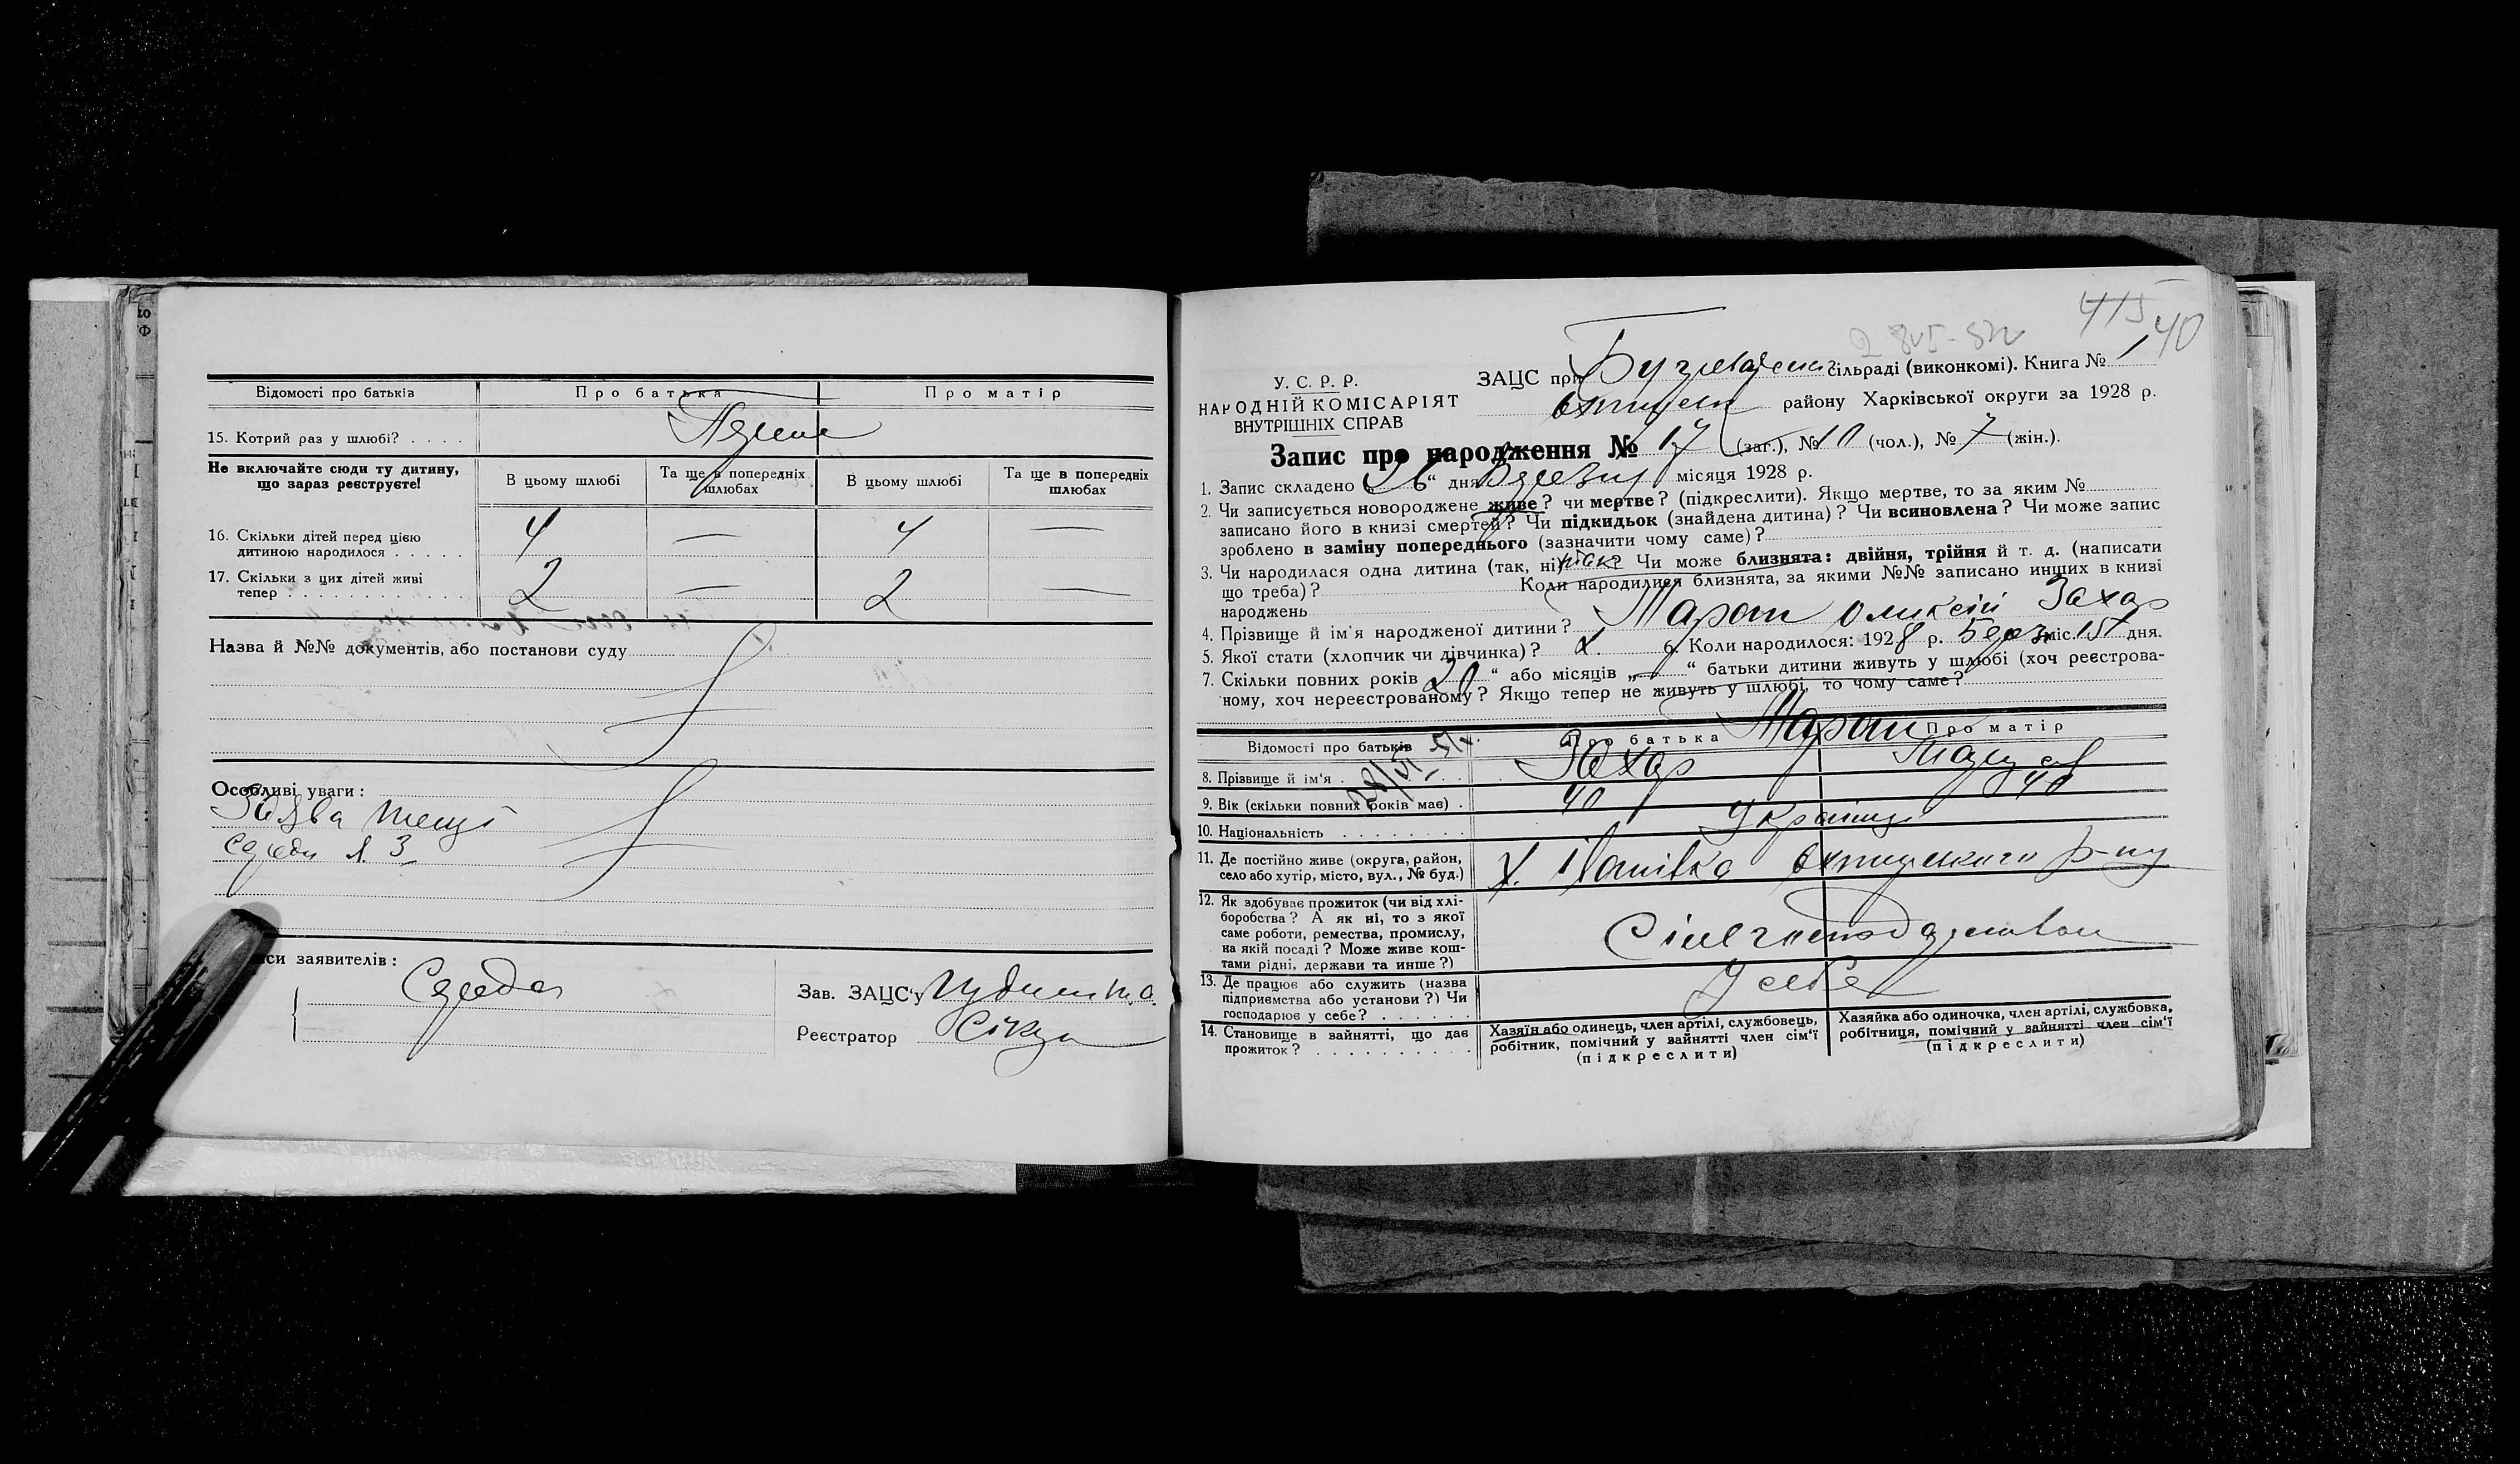 Відомості про батьків
Про батька
Про матір
15. Котрий раз у шлюбі? . . . .
Не включайте сюди ту дитину,
що зараз реєструєте!
В цьому шлюбі
Та ще в попередніх
шлюбах
В цьому шлюбі
Та ще в попередніх
шлюбах
16. Скільки дітей перед цією
дитиною народилося . . . . .
4 — 4 —
17. Скільки з цих дітей живі
тепер . . . . . . . . . . . .
2 — 2 —
Назва й №№ документів, або постанови суду
Особливі уваги:
си заявителів:
Середа
Зав. ЗАЦС'у
Реєстратор
415 40
У. С. Р. Р.
НАРОДНІЙ КОМІСАРІЯТ
ВНУТРІШНІХ СПРАВ
ЗАЦС при сільраді (виконкомі). Книга № 1
району Харківської округи за 1928 р.
Запис про народження № 17 (заг.), № 10 (чол.), № 7 (жін.).
1. Запис складено „26“ дня Березня місяця 1928 р.
2. Чи записується новороджене живе? чи мертве? (підкреслити). Якщо мертве, то за яким №
записано його в книзі смертей? Чи підкидьок (знайдена дитина)? Чи всиновлена? Чи може запис
зроблено в заміну попереднього (зазначити чому саме)?
3. Чи народилася одна дитина (так, ні)? Чи може близнята: двійня, трійня й т. д. (написати
що треба)? Коли народилися близнята, за якими №№ записано инших в книзі
народжень
4. Прізвище й ім'я народженої дитини? Олексій Захар
5. Якої стати (хлопчик чи дівчинка)? х. 6. Коли народилося: 1928 р. Берез міс. 15 дня.
7. Скільки повних років 20 “ або місяців „—“ батьки дитини живуть у шлюбі (хоч реєстрова-
ному, хоч нереєстрованому? Якщо тепер не живуть у шлюбі, то чому саме?
Відомості про батьків
Про батька
Про матір
8. Прізвище й ім'я . . . . . . . .
Захар
9. Вік (скільки повних років має) .
40 40
10. Національність . . . . . . . .
Українці
11. Де постійно живе (округа, район,
село або хутір, місто, вул., № буд.)
12. Як здобуває прожиток (чи від хлі-
боробства? А як ні, то з якої
саме роботи, ремества, промислу,
на якій посаді? Може живе кош-
тами рідні, держави та инше?)
13. Де працює або служить (назва
підприємства або установи?) Чи
господарює у себе? . . . . . .
У себе
14. Становище в зайнятті, що дає
прожиток? . . . . . . . . . .
Хазяїн або одинець, член артілі, службовець,
робітник, помічний у зайнятті член сім'ї
(підкреслити)
Хазяйка або одиночка, член артілі, службовка,
робітниця, помічний у зайнятті член сім'ї
(підкреслити)